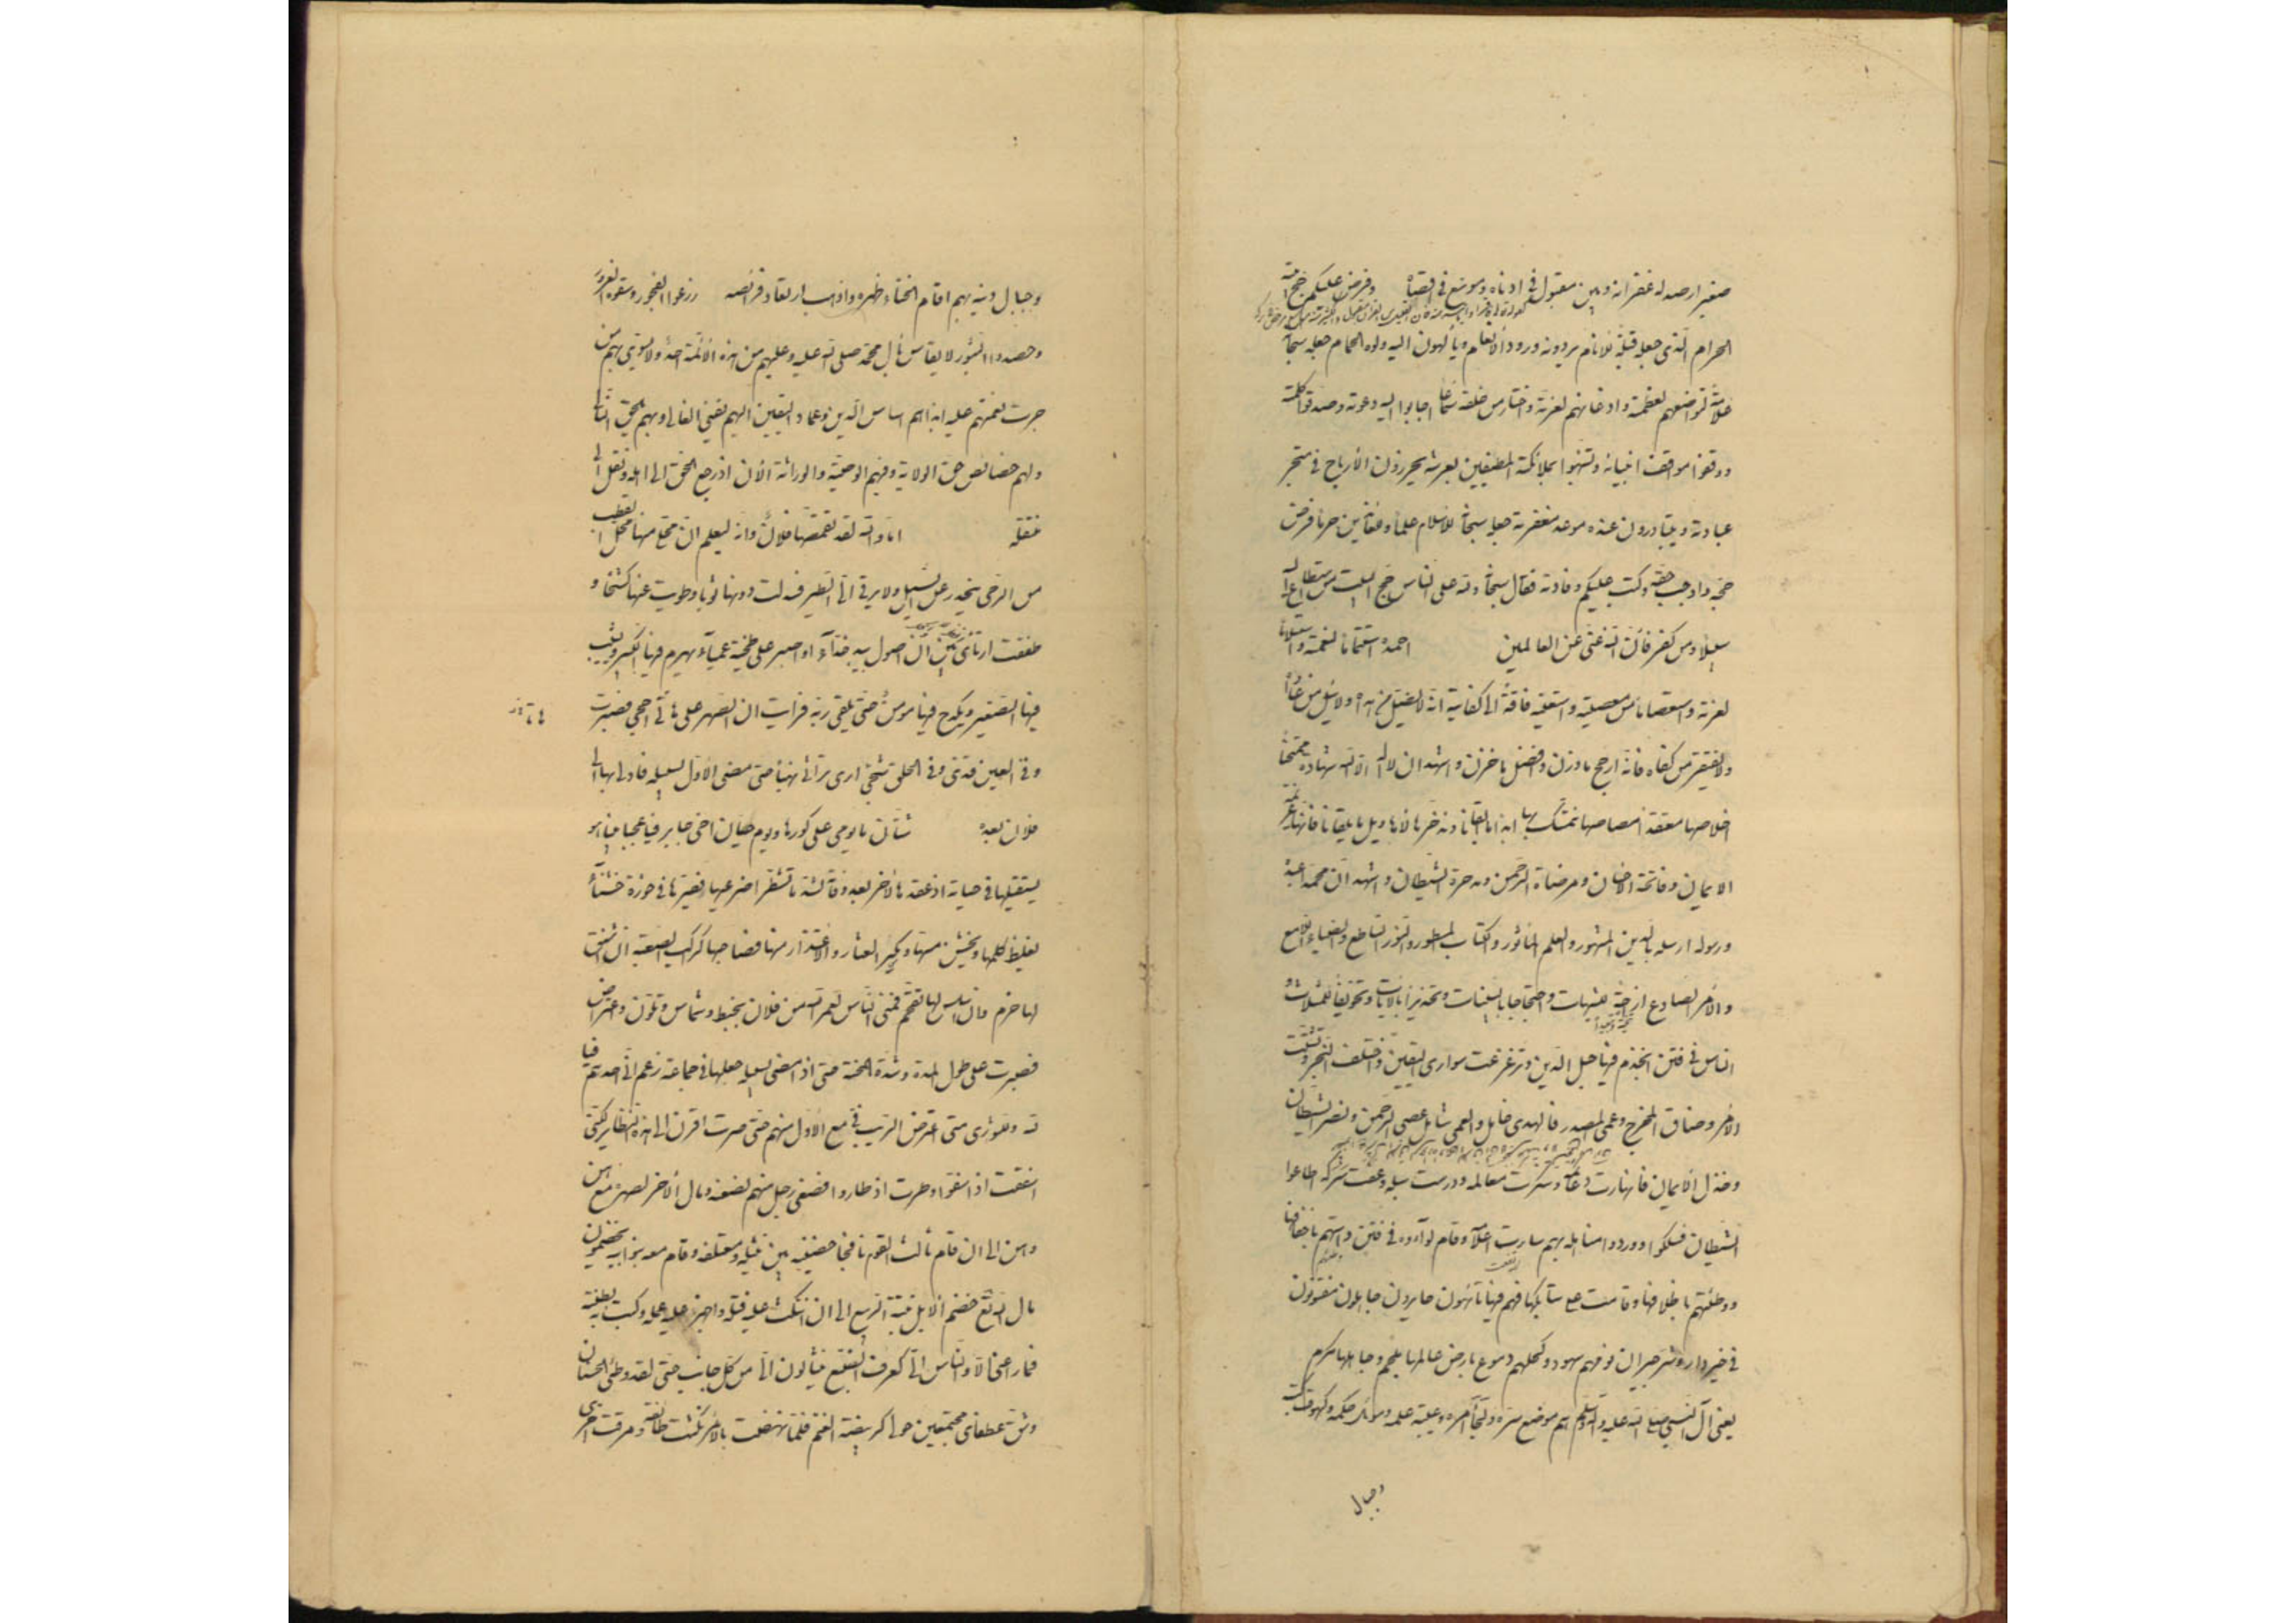 صغير ارصد له غفرانه وبين مقبول فى ادناه وموسع فى اقصاه وفرض عليكم حج بيته
الحرام الّذى جعله قبلة للانام يردونه ورود الانعام ويألهون اليه ولوه الحمام جعله سبحانه
علامة لتواضعهم لعظمته واذعانهم لعزته واختار من خلقه سمّاعا اجابوا اليه دعوته وصدقوا كلمته
ووقفوا مواقف انبيائه وتشبهوا بملائكته المطيفين بعرشه يحرزون الأرباح فى متجر
عبادته ويتبادرون عنده موعد مغفرته جعله سبحانه للاسلام علما وللعائذين حرما فرض
حجه واوجب حقه وكتب عليكم وفادته فقال سبحانه ولله على الناس حج البيت من استطاع اليه
سبيلا ومن كفر فأن الله غنى عن العالمين احمده استتماما لنعمته واستسلاما
لعزته واستعصاما من معصيته واستعينه فاقة الى كفايته انه لا يضل من هداه ولا يئل من عاداه
ولا يفتقر من كفاه فانه ارجح ما وزن وافضل ما خزن واشهد ان لا اله الا الله شهادة ممتحنا
اخلاصها معتقدا مصاصها نتمسك بها ابدا ما ابقانا وندخرها لاهاويل ما يلقانا فانها عزيمة
الايمان وفاتحة الاحسان ومرضاة الرحمن ومدحرة الشيطان واشهد ان محمدا عبده
ورسوله ارسله بالدين المشهور والعلم المأثور والكتاب المسطور والنور الساطع والضياء اللامع
والأمر الصادع ازاحة للشبهات واحتجاجا بالبينات وتحذيرا بالايات وتخويفا للمثلات و
الناس فى فتن انجذم فيها حبل الدين وتزعزعت سوارى اليقين واختلف النجر وتشتت
الأمر وضاق المخرج وعمى المصدر فالهدى خامل والعمى شامل عصى الرحمن ونصر الشيطان
وخذل الايمان فانهارت دعائمه وتنكرت معالمه ودرست سبله وعفت شركه اطاعوا
الشيطان فسلكوا مسالكه ووردوا مناهله بهم سارت اعلامه وقام لواءه فى فتن داستهم باخفافها
ووطئتهم باظلافها وقامت على سنابكها فهم فيها تائهون حايرون جاهلون مفتونون
فى خير دار وشر جيران نومهم سهود وكحلهم دموع بارض عالمها ملجم وجاهلها مكرم
يعنى آل النبى صلى الله عليه وآله وسلم هم موضع سره ولجأ امره وعيبة علمه وموئل حكمه وكهوف كتبه
وجبال
وجبال دينه بهم اقام انحناء ظهره واذهب ارتعاد فرائصه زرعوا الفجور وسقوه الغرور
وحصدوا الثبور لا يقاس بآل محمد صلى الله عليه وعليهم من هذه الأئمة احد ولا يسوى بهم من
جرت نعمتهم عليه ابدا هم اساس الدين وعماد اليقين اليهم يفئ الغالى وبهم يلحق التالى
ولهم خصائص حق الولاية وفيهم الوصية والوراثة الآن اذ رجع الحق الى اهله ونقل الى
منتقله اما والله لقد تقمصها فلان وانه ليعلم ان محلى منها محل القطب
من الرحى ينحدر عنى السيل ولا يرقى الىّ الطير فسدلت دونها ثوبا وطويت عنها كشحا و
طفقت ارتأى بين ان اصول بيد جذاء او اصبر على طخية عمياء يهرم فيها الكبير ويشيب
فيها الصغير ويكدح فيها مؤمن حتى يلقى ربه فرأيت ان الصبر على هاتى احجى فصبرت
وفى العين قذى وفى الحلق شجى ارى تراثى نهبا حتى مضى الأول لسبيله فادلى بها الى
فلان بعده شتان ما يومى على كورها ويوم حيان اخى جابر فيا عجبا بينا هو
يستقيلها فى حياته اذ عقدها لأخر بعد وفاته لشد ما تشطرا ضرعيها فصيرها فى حوزة خشناء
يغلظ كلمها ويخشن مسها ويكثر العثار والاعتذار منها فصاحبها كراكب الصعبة ان اشنق
لها خرم وان اسلس لها تقحم فمنى الناس لعمر الله من فلان بخبط وشماس وتلون واعتراض
فصبرت على طول المدة وشدة المحنة حتى اذا مضى لسبيله جعلها فى جماعة زعم انى احدهم فيا
لله وللشورى متى اعترض الريب فىّ مع الأول منهم حتى صرت اقرن الى هذه النظاير لكنى
اسففت اذ اسفوا وطرت اذ طاروا فصغى رجل منهم لضغنه ومال الأخر لصهره مع هن
وهن الى ان قام ثالث القوم نافجا حضنيه بين نثيله ومعتلفه وقام معه بنو ابيه يخضمون
مال الله تعالى خضم الابل نبتة الربيع الى ان انتكث عليه فتله واجهز عليه عمله وكبت به بطنته
فما راعنى الا والناس الىّ كعرف الضبع ينثالون الىّ من كل جانب حتى لقد وطئ الحسنان
وشق عطفاى مجتمعين حولى كربيضة الغنم فلما نهضت بالامر نكثت طائفة ومرقت اخرى